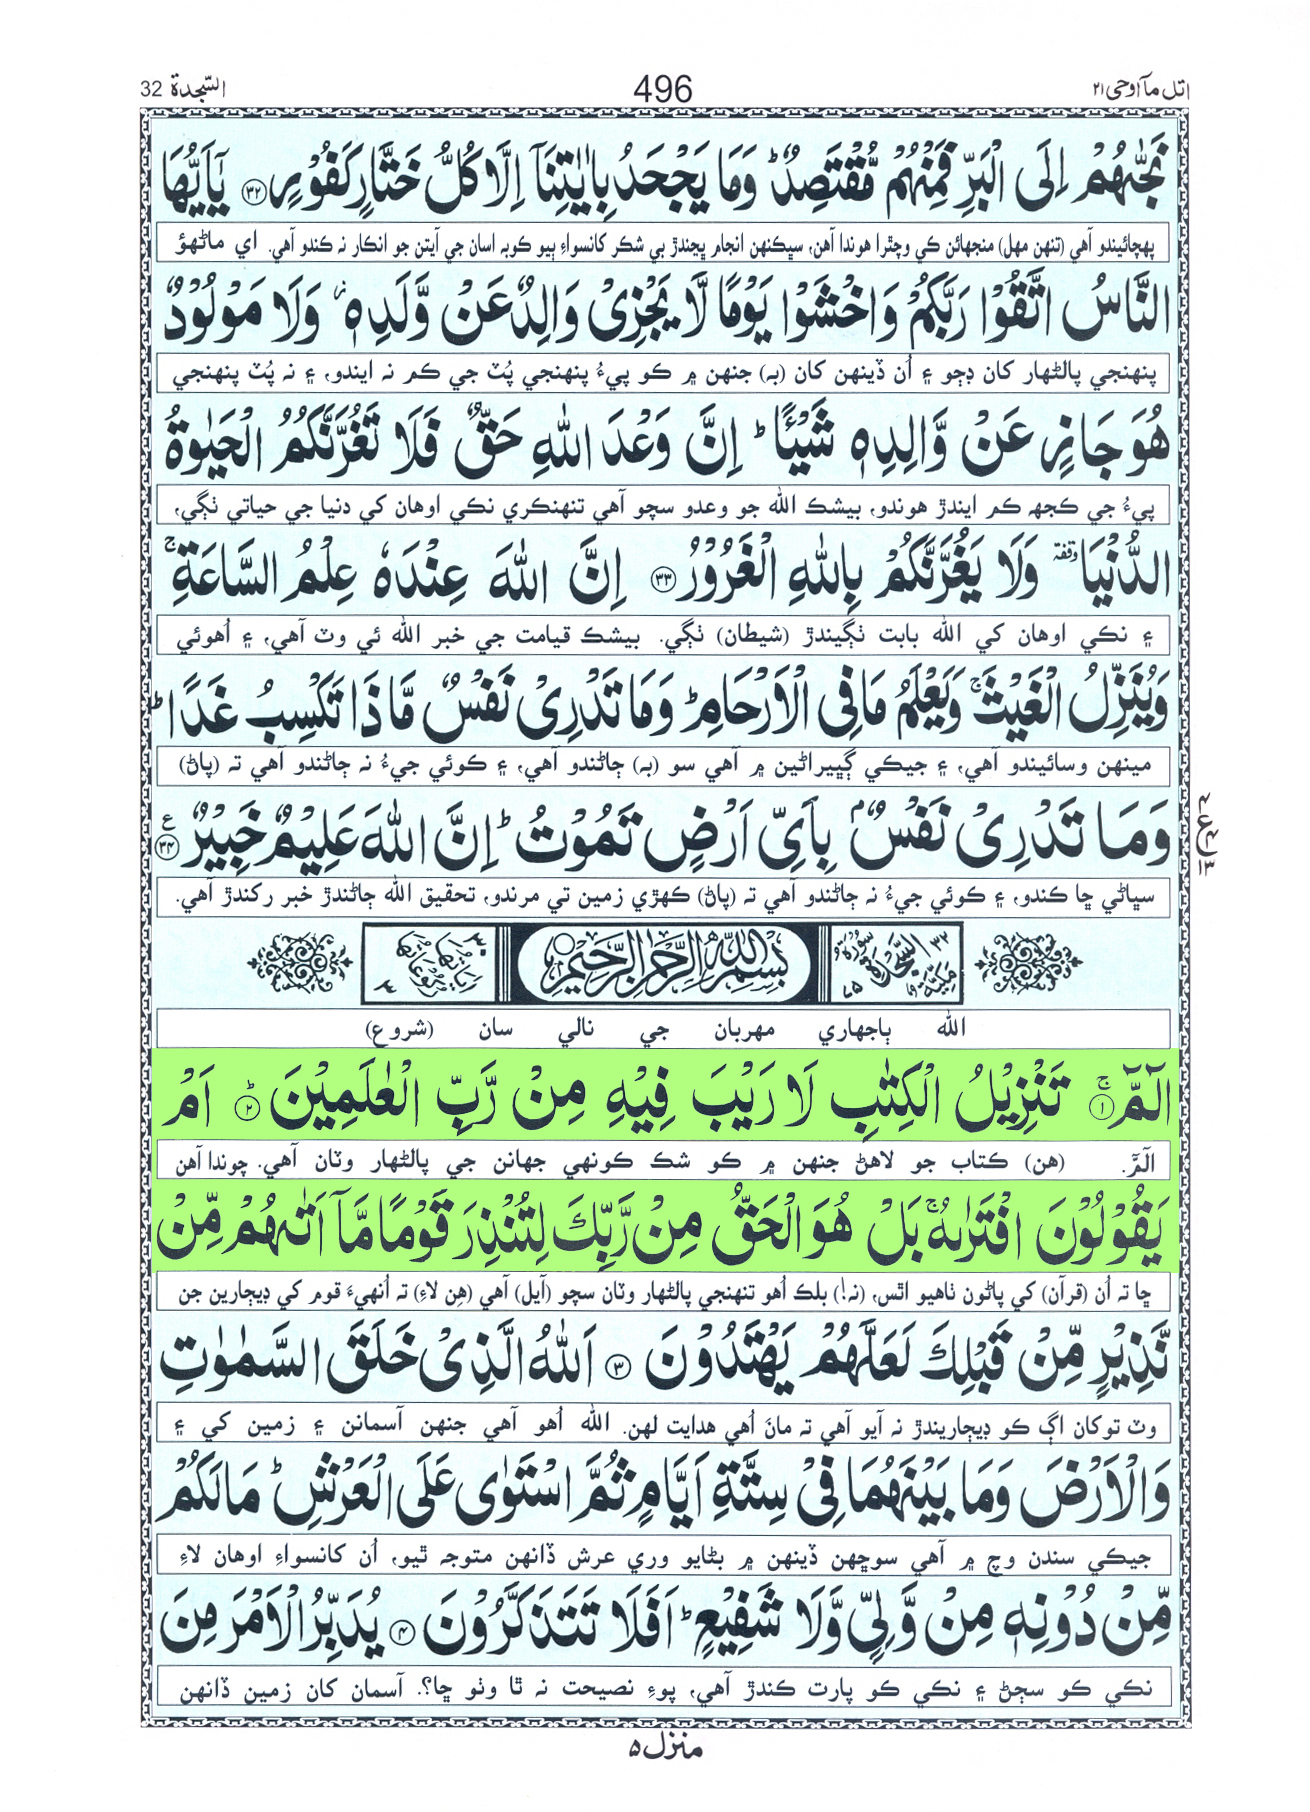 اتل مآ اوحی ۲۱ 496 السّجدة 32
نَجّٰىهُمْ اِلَى الْبَرِّ فَمِنْهُمْ مُّقْتَصِدٌ ؕ وَمَا يَجْحَدُ بِاٰيٰتِنَاۤ اِلَّا كُلُّ خَتَّارٍ كَفُوْرٍ ۝۳۲ يٰۤاَيُّهَا
پهچائيندو آهي (تنهن مهل) منجهائن کي وچٿرا هوندا آهن، سڀڪنهن انجام ڀڃندڙ بي شڪر کانسواءِ ٻيو ڪوبہ اسان جي آيتن جو انڪار نہ ڪندو آهي. اي ماڻهؤ
النَّاسُ اتَّقُوْا رَبَّكُمْ وَاخْشَوْا يَوْمًا لَّا يَجْزِىْ وَالِدٌ عَنْ وَّلَدِهٖ ؗ وَلَا مَوْلُوْدٌ
پنهنجي پالڻهار کان ڊڄو ۽ اُن ڏينهن کان (بہ) جنهن ۾ ڪو پيءُ پنهنجي پُٽ جي ڪم نہ ايندو، ۽ نہ پُٽ پنهنجي
هُوَ جَازٍ عَنْ وَّالِدِهٖ شَيْـًٔا ؕ اِنَّ وَعْدَ اللّٰهِ حَقٌّ فَلَا تَغُرَّنَّكُمُ الْحَيٰوةُ
پيءُ جي ڪجهہ ڪم ايندڙ هوندو، بيشڪ الله جو وعدو سچو آهي تنهنڪري نڪي اوهان کي دنيا جي حياتي ٺڳي،
الدُّنْيَا وقفة وَلَا يَغُرَّنَّكُمْ بِاللّٰهِ الْغَرُوْرُ ۝۳۳ اِنَّ اللّٰهَ عِنْدَهٗ عِلْمُ السَّاعَةِ ۚ
۽ نڪي اوهان کي الله بابت ٺڳيندڙ (شيطان) ٺڳي. بيشڪ قيامت جي خبر الله ئي وٽ آهي، ۽ اُهوئي
وَيُنَزِّلُ الْغَيْثَ ۚ وَيَعْلَمُ مَا فِى الْاَرْحَامِ ؕ وَمَا تَدْرِىْ نَفْسٌ مَّاذَا تَكْسِبُ غَدًا ؕ
مينهن وسائيندو آهي، ۽ جيڪي ڳڀيراڻين ۾ آهي سو (بہ) ڄاڻندو آهي، ۽ ڪوئي جيءُ نہ ڄاڻندو آهي تہ (پاڻ)
وَمَا تَدْرِىْ نَفْسٌۢ بِاَىِّ اَرْضٍ تَمُوْتُ ؕ اِنَّ اللّٰهَ عَلِيْمٌ خَبِيْرٌ ۝۳۴ ع
سڀاڻي ڇا ڪندو، ۽ ڪوئي جيءُ نہ ڄاڻندو آهي تہ (پاڻ) ڪهڙي زمين تي مرندو، تحقيق الله ڄاڻندڙ خبر رکندڙ آهي.
۳۲ سُوْرَةُ السَّجْدَةِ مَكِّيَّةٌ ۷۵ بِسْمِ اللّٰهِ الرَّحْمٰنِ الرَّحِيْمِ اٰيَاتُهَا ۳۰ رُكُوْعَاتُهَا ۳
الله ٻاجهاري مهربان جي نالي سان (شروع)
الٓمّٓ ۝۱ۚ تَنْزِيْلُ الْكِتٰبِ لَا رَيْبَ فِيْهِ مِنْ رَّبِّ الْعٰلَمِيْنَ ۝۲ؕ اَمْ
الٓمّٓ. (هن) ڪتاب جو لاهڻ جنهن ۾ ڪو شڪ ڪونهي جهانن جي پالڻهار وٽان آهي. چوندا آهن
يَقُوْلُوْنَ افْتَرٰىهُ ۚ بَلْ هُوَ الْحَقُّ مِنْ رَّبِّكَ لِتُنْذِرَ قَوْمًا مَّاۤ اَتٰىهُمْ مِّنْ
ڇا تہ اُن (قرآن) کي پاڻون ٺاهيو اٿس، (نہ!) بلڪ اُهو تنهنجي پالڻهار وٽان سچو (آيل) آهي (هِن لاءِ) تہ اُنهيءَ قوم کي ڊيڄارين جن
نَّذِيْرٍ مِّنْ قَبْلِكَ لَعَلَّهُمْ يَهْتَدُوْنَ ۝۳ اَللّٰهُ الَّذِىْ خَلَقَ السَّمٰوٰتِ
وٽ توکان اڳ ڪو ڊيڄاريندڙ نہ آيو آهي تہ مانَ اُهي هدايت لهن. الله اُهو آهي جنهن آسمانن ۽ زمين کي ۽
وَالْاَرْضَ وَمَا بَيْنَهُمَا فِىْ سِتَّةِ اَيَّامٍ ثُمَّ اسْتَوٰى عَلَى الْعَرْشِ ؕ مَا لَكُمْ
جيڪي سندن وچ ۾ آهي سو ڇهن ڏينهن ۾ بڻايو وري عرش ڏانهن متوجہ ٿيو، اُن کانسواءِ اوهان لاءِ
مِّنْ دُوْنِهٖ مِنْ وَّلِىٍّ وَّلَا شَفِيْعٍ ؕ اَفَلَا تَتَذَكَّرُوْنَ ۝۴ يُدَبِّرُ الْاَمْرَ مِنَ
نڪي ڪو سڄڻ ۽ نڪي ڪو پارت ڪندڙ آهي، پوءِ نصيحت نہ ٿا وٺو ڇا؟. آسمان کان زمين ڏانهن
منزل ۵